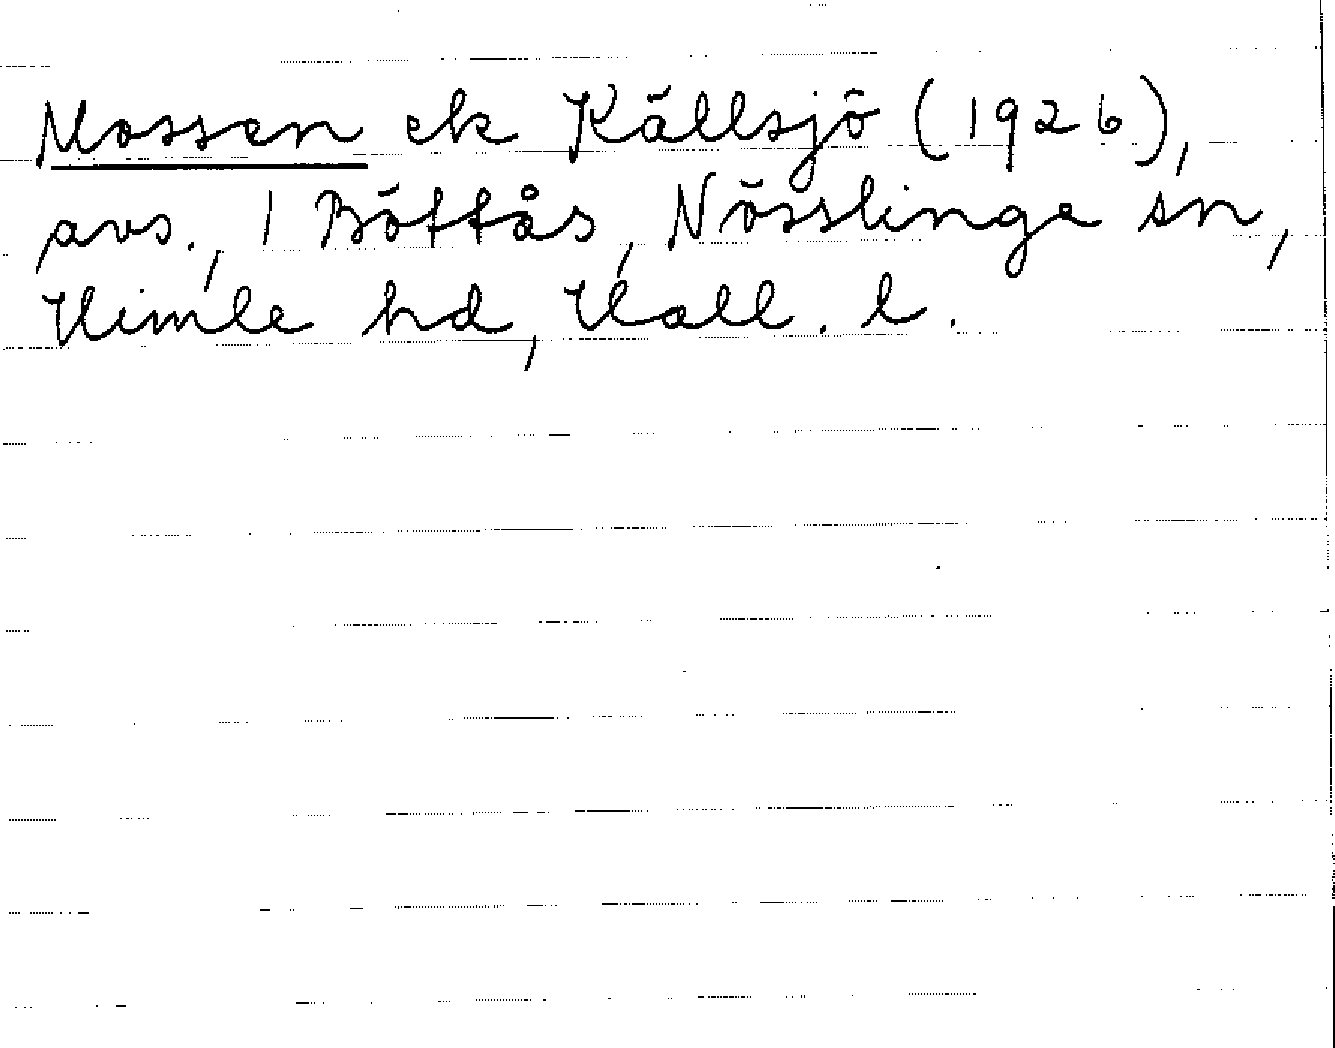 Mossen ek Källsjö (1926),
avs., 1 Böttås, Nösslinge sn,
Himle hd, Hall. l.